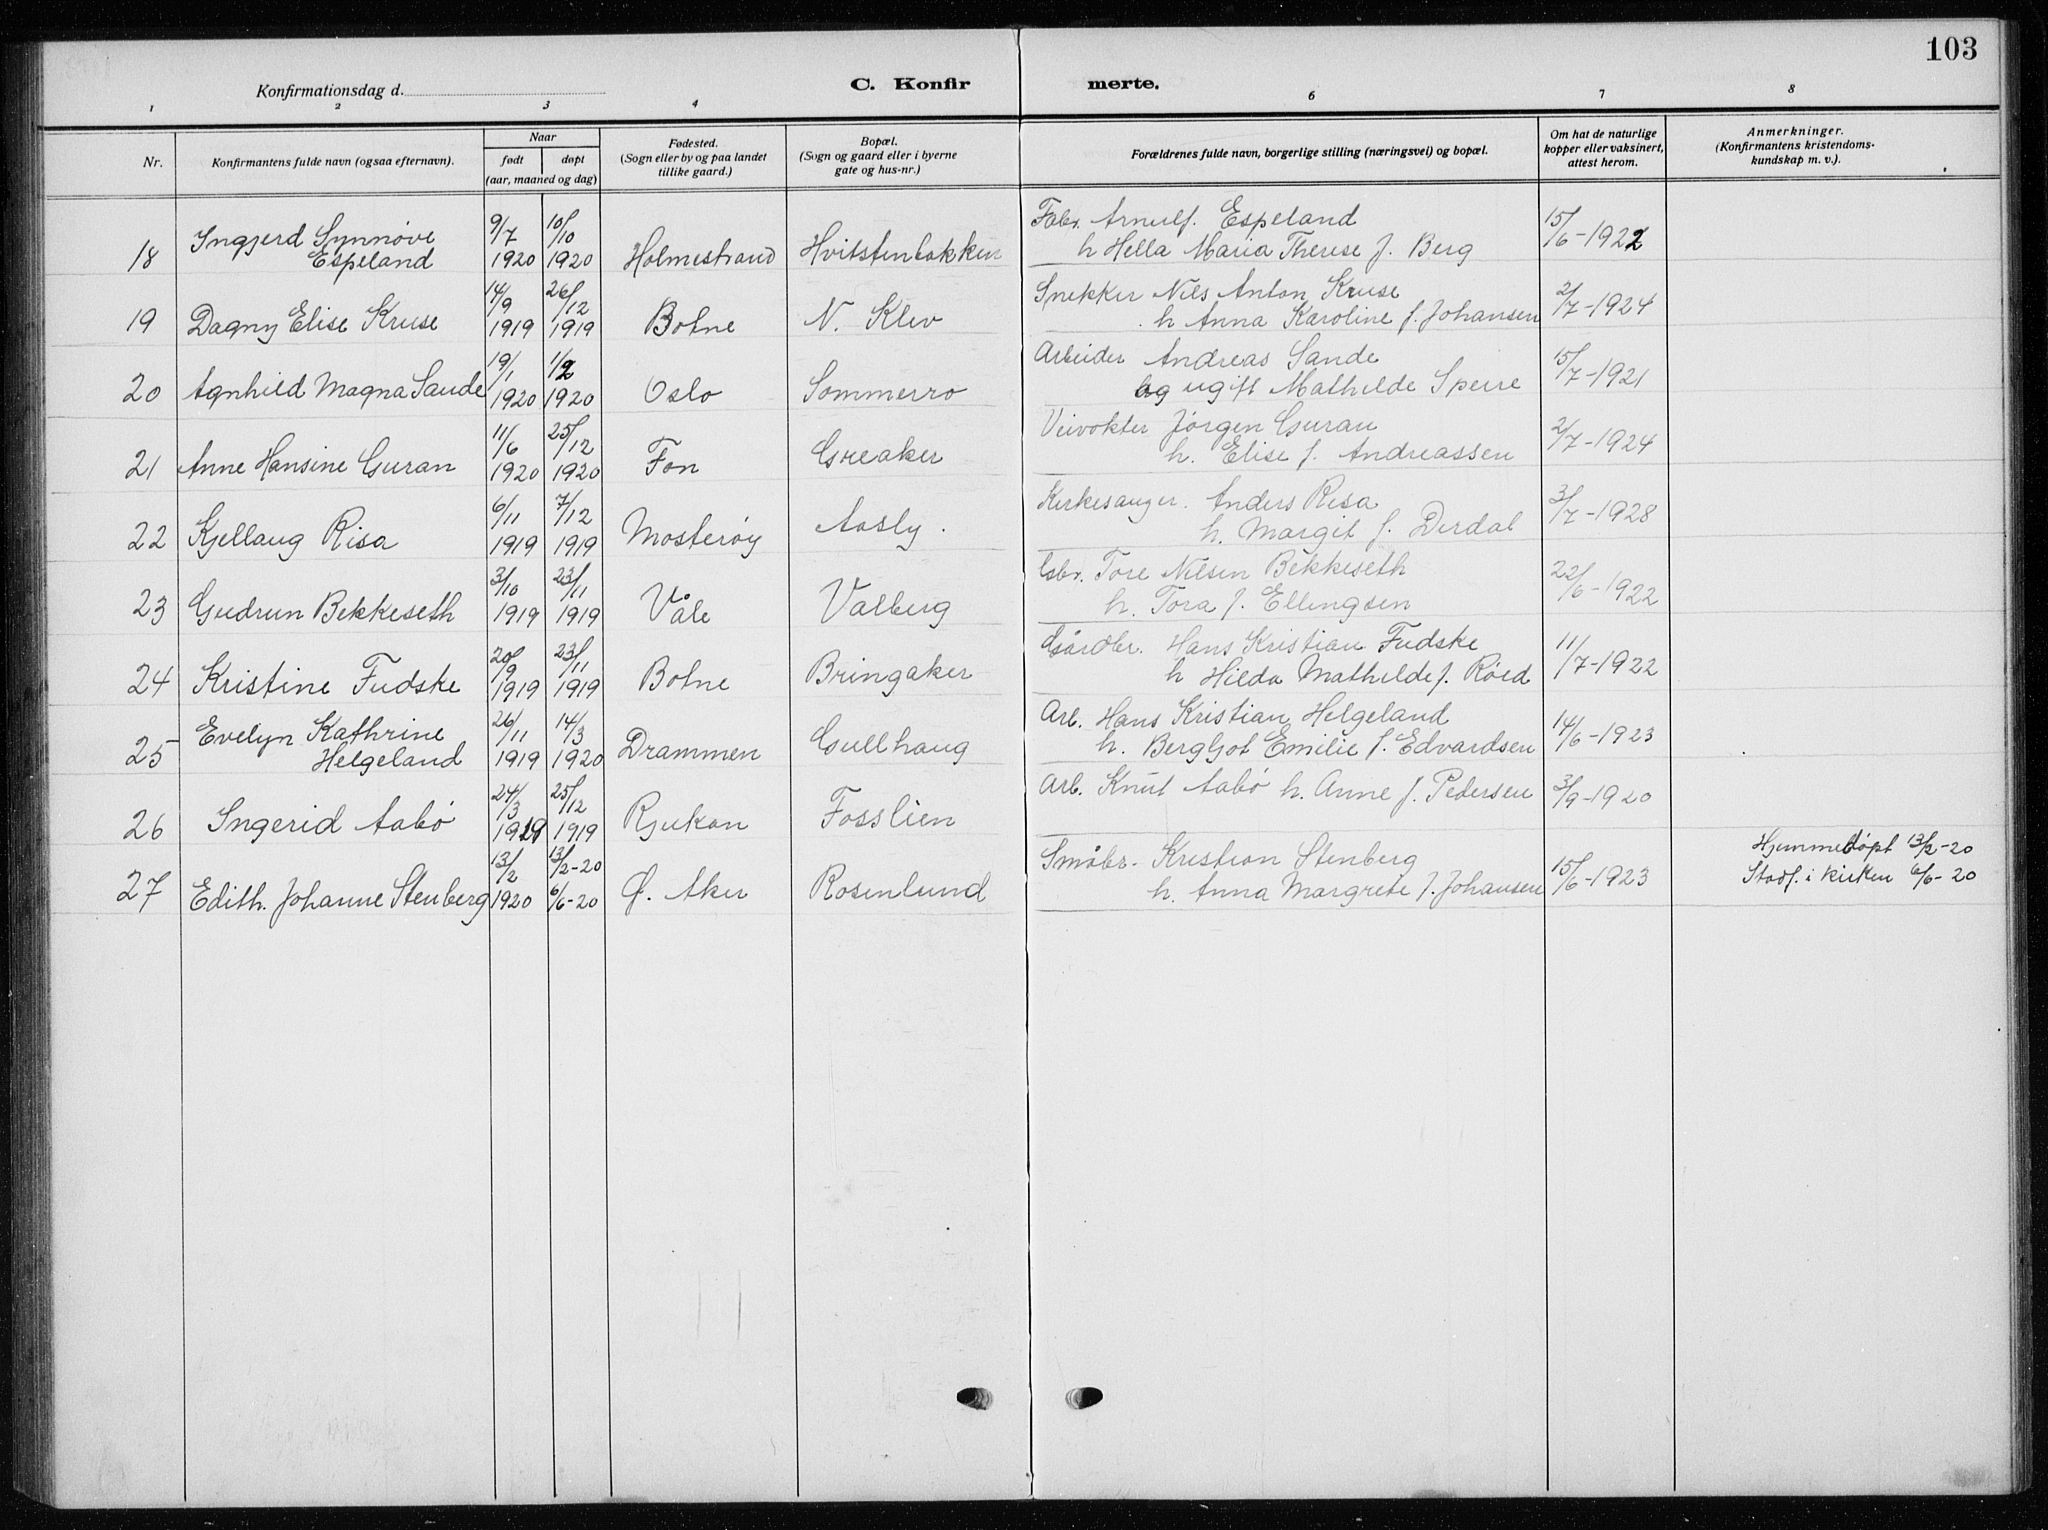 103
Konfirmationsdag d.
C. Konfir merte.
1 2 3 4 6 7 8
Nr. Konfirmantens fulde navn (ogsaa efternavn). Naar født døpt (aar, maaned og dag) Fødested. (Sogn eller by og paa landet tillike gaard.) Bopæl. (Sogn og gaard eller i byerne gate og hus-nr.) Forældrenes fulde navn, borgerlige stilling (næringsvei) og bopæl. Om hat de naturlige kopper eller vaksinert, attest herom. Anmerkninger. (Konfirmantens kristendoms-kundskap m. v.).
Ingjerd Synnøve 9/7 10/10 Fabr. Arnulf Espeland 15/6-1922
18 Espeland 1920 1920 Holmestrand Hvitstenbakken h Hella Maria Therese f. Berg
14/9 26/12 Snekker Nils Anton Kruse 2/7-1924
19 Dagny Elise Kruse 1919 1919 Botne N. Klev h Anna Karoline f. Johansen
19/1 1/2 Arbeider Andreas Sande 15/7-1921
20 Agnhild Magna Sande 1920 1920 Oslo Sommerro og ugift Mathilde Sperre
11/6 25/12 Veivokter Jørgen Guran 2/7-1924
21 Anne Hansine Guran 1920 1920 Fon Greaker h. Elise f. Andreassen
6/11 7/12 Kirkesanger. Anders Risa 3/7-1928
22 Kjellaug Risa 1919 1919 Mosterøy Aasly. h. Margit f. Dirdal
3/10 23/11 Gbr. Tore Nilsen Bekkeseth 22/6-1922
23 Gudrun Bekkeseth 1919 1919 Våle Valberg h. Tora f. Ellingsen
20/9 23/11 Gårdbr. Hans Kristian Fudske 11/7-1922
24 Kristine Fudske 1919 1919 Botne Bringaker h Hilda Mathilde f. Røed
Evelyn Kathrine 26/11 14/3 Arb. Hans Kristian Helgeland 14/6-1923
25 Helgeland 1919 1920 Drammen Gullhaug h. Bergljot Emilie f. Edvardsen
24/3 25/12 Arb. Knut Aabø h. Anne f. Pedersen 3/9-1920
26 Ingerid Aabø 1919 1919 Rjukan Fosslien
13/2 13/2-20 Småbr. Kristian Stenberg 15/6-1923 Hjemmedøpt 13/2-20
27 Edith Johanne Stenberg 1920 6/6-20 Ø. Aker Rosenlund h. Anna Margrete f. Johansen Stadf. i kirken 6/6-20